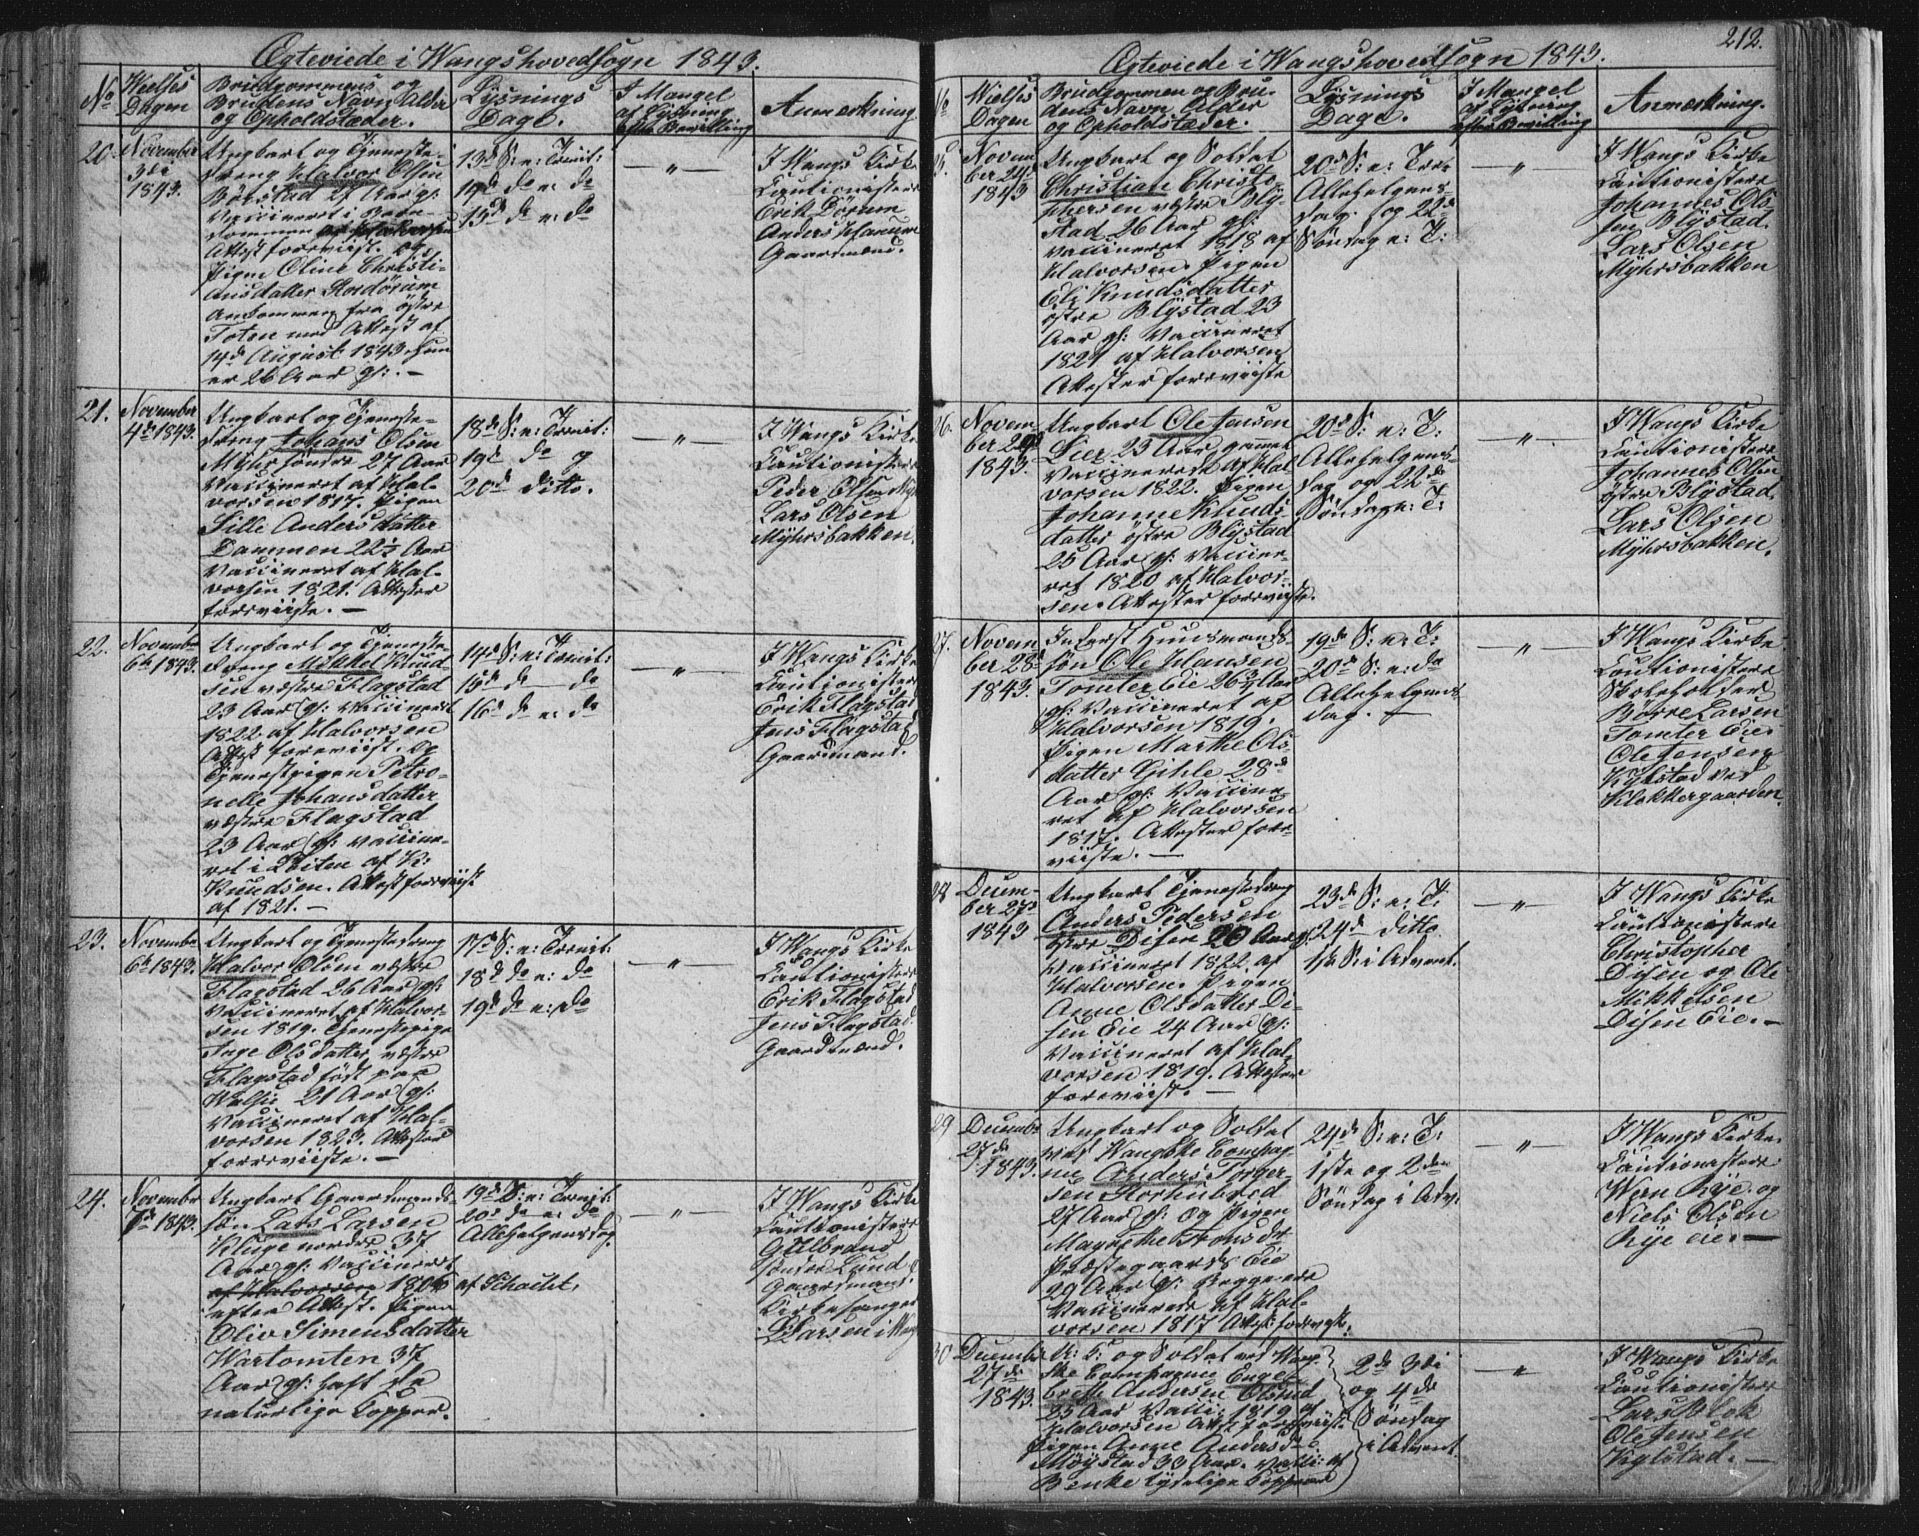 Ægteviede i Wangshovedsogn 1843.
No
Wielses Dagen
Brudgommens og
Brudens Navn Alder
og Opholdstæder.
Lysnings
Dage.
I Mangel
af Lysning
efter Bevilling
Anmærkning
20.
November
3die
1843.
Ungkarl og Tjeneste
dreng Halvor Olsen
Børstad 27 Aar gl:
Vaccineret i
Attest foreviist. og
Pigen Oline Christi-
ansdatter Stordørum
Ankommen fra østre
Toten med Attest af
14de August 1843. Hun
er 26 Aar gl: —
13de S: e: Trinit:
19de do e: do
15de do e: do
— " —
I Wangs Kirke
Cautionister
Erik Dørum
Anders Hanum
Gaardmænd.
21.
November
4de 1843.
Ungkarl og Tjeneste-
dreng Johans Olsen
Myhr søndre 27 Aar
Vaccineret af Hal-
vorsen 1817. Pigen
Sille Andersdatter
Dammen 22½ Aar
Vaccineret af Hal-
vorsen 1821. Attester
foreviiste. —
18de S: e: Trinit:
19de do og
20de ditto.
— " —
I Wangs Kirke
Cautionister
Peder Olsen Myhr
Lars Olsen
Myhrsbakken.
22.
November
6te 1843.
Ungkarl og Tjeneste
dreng Mikkel Knud
sen vestre Flagstad
23 Aar gl: Vaccineret
1822 af Halvorsen
Attest foreviist. og
Tjenestpigen Petro-
nelle Johansdatter
vestre Flagstad
23 Aar gl: vaccine-
ret i Løiten af K:
Knudsen. Attest foreviist
af 1821. —
14de S: e: Trinit:
15de do — do
16de do e: do
— " —
I Wangs Kirke
Cautionister
Erik Flagstad
Jens Flagstad
Gaardmænd.
23.
November
6te 1843.
Ungkarl og Tjenestedreng
Halvor Olsen vestre
Flagstad 26 Aar gl:
Vaccineret af Halvor-
sen 1819. Tjenestepige
Inge Olsdatter vestre
Flagstad født paa
21 Aar gl:
Vaccineret af Hal-
vorsen 1823. Attester
foreviiste. —
17de S: e: Trinit:
18de do e: do
19de do e: do
— " —
I Wangs Kirke
Cautionister
Erik Flagstad
Jens Flagstad
Gaardmænd.
24.
November
7de 1843.
Ungkarl Gaardmands-
søn Lars Larsen
Kluge nordre 37
Aar gl: Vaccineret
af Halvorsen 1806 af Schacht,
efter Attest. Pigen
Oliv Simensdatter
Wartomten 37
Aar gl: haft de
naturlige Kopper.
19de S: e: Trinit:
20de do e: do
Allehelgensdag.
— " —
I Wangs Kirke
Cautionister
Gulbrand
søndre Lund
Gaardmand.
Kirkesanger
Larsen i Wang
212.
Ægteviede i Wangshovedsogn 1843.
No
Wielses
Dagen
Brudgommen og Bru-
dens Navn Alder
og Opholdstæder.
Lysnings
Dage.
I Mangel
af Lysning
efter Bevilling
Anmærkning.
25.
Novem
ber 24de
1843
Ungkarl og Soldat
Christian Christo-
phersen vestre Bly-
stad 26 Aar gl:
vaccineret 1818 af
Halvorsen. Pigen
Eli Knudsdatter
østre Blystad 23
Aar gl: Vaccineret
1821 af Halvorsen
Attester foreviiste
20de S: e: Tre
Allehelgens-
dag. og 22de
Søndag e: T:
— " —
I Wangs Kirke
Cautionister
Johannes Ol-
sen Blystad.
Lars Olsen
Myhrsbakken
26.
Novem
ber
1843.
Ungkarl Ole Jensen
Lier 23 Aar gammel
Vaccineret af Hal
vorsen 1822. Pigen
Johanne Knuds-
datter østre Blystad
25 Aar gl: Vaccine-
ret 1820 af Halvor-
sen. Attester foreviiste.
20de S: e: T:
Allehelgens-
dag og 22de
Søndag e: T:
— " —
I Wangs Kirke
Cautionister
Johannes Olsen
østre Blystad.
Lars Olsen
Myhrsbakken.
27.
Novem
ber 28de
1843.
Inderst Huusmands-
søn Ole Hansen
Tomter Eie 26 Aar
gl: Vaccineret af
Halvorsen 1819.
Pigen Marthe Ols-
datter Gihle 28de
Aar gl: Vaccine-
ret af Halvorsen
1817. Attester fore-
viiste. —
19de S: e: T:
20de S: e: do
Allehelgens-
dag. —
— " —
I Wangs Kirke
Cautionister
Skoleholder
Børre Larsen
Tomter Eie.
Ole Jensen
Kylstad ved
Klokkergaarden.
28
Decem-
ber 27de
1843
Ungkarl Tjenestedreng
Anders Pedersen
østre Disen 20 Aar gl:
Vaccineret 1822. af
Halvorsen. Pigen
Anne Olsdatter Di-
sen Eie 24 Aar gl:
Vaccineret af Hal-
vorsen 1819. Attester
foreviist. —
23de S: e: T:
24de ditto
1ste S: i Advent.
— " —
I Wangs Kirke
Cautionister
Christopher
Disen og Ole
Mikkelsen
Disen Eie. —
29
Decembr
27de
1843.
Ungkarl og Soldat
ved Wangske Compag-
nie Anders Torger-
sen Korhubred
27 Aar gl: og Pigen
Magrethe Tronsdt
Præstegaards Eie
29 Aar gl: Begge ere
Vaccinerede af Hal-
vorsen 1817 Attest: forevist.
24de S: e: T:
1ste og 2den
Søndag i Adv:
— " —
I Wangs Kirke.
Cautionister
Wern Rye. og
Niels Olsen
Rye eie. —
30
Decembr
27de
1843.
U: K: og Soldat ved Wang
ske Compagnie Engel
brett Andersen Olsrud
25 Aar Vacci: 1819 af
Halvorsen Attest foreviist.
Pigen Anne Andersdr.
Møystad 33 Aar. Vacci: af
Benke tydelige Kopper
2de 3die
og 4de
Søndag
i Advent
— " —
I Wangs Kirke
Cautionister
Lars Blek
Ole Jensen
Kylstad. —